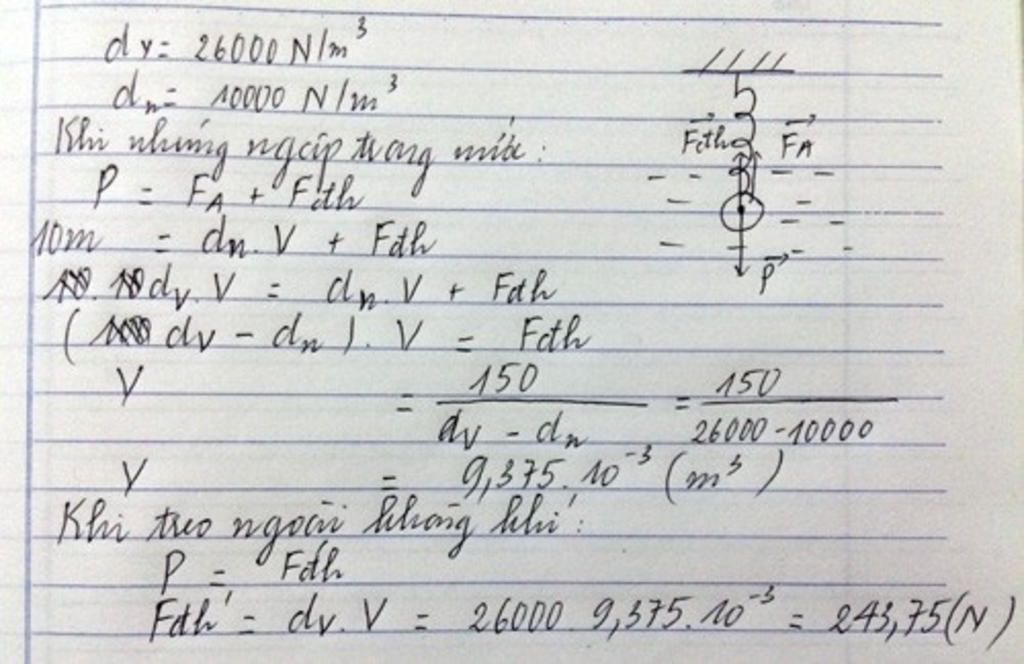 dv = 26000 N/m³
dn = 10000 N/m³
Khi nhúng ngập trong nước:
P = FA + Fđh
10m = dn. V + Fđh
dv. V = dn. V + Fđh
( dv - dn ). V = Fđh
V = 150 / (dv - dn) = 150 / (26000 - 10000)
V = 9,375. 10⁻³ (m³)
Khi treo ngoài không khí:
P = Fđh
Fđh' = dv. V = 26000. 9,375. 10⁻³ = 243,75 (N)
Fđh FA
P